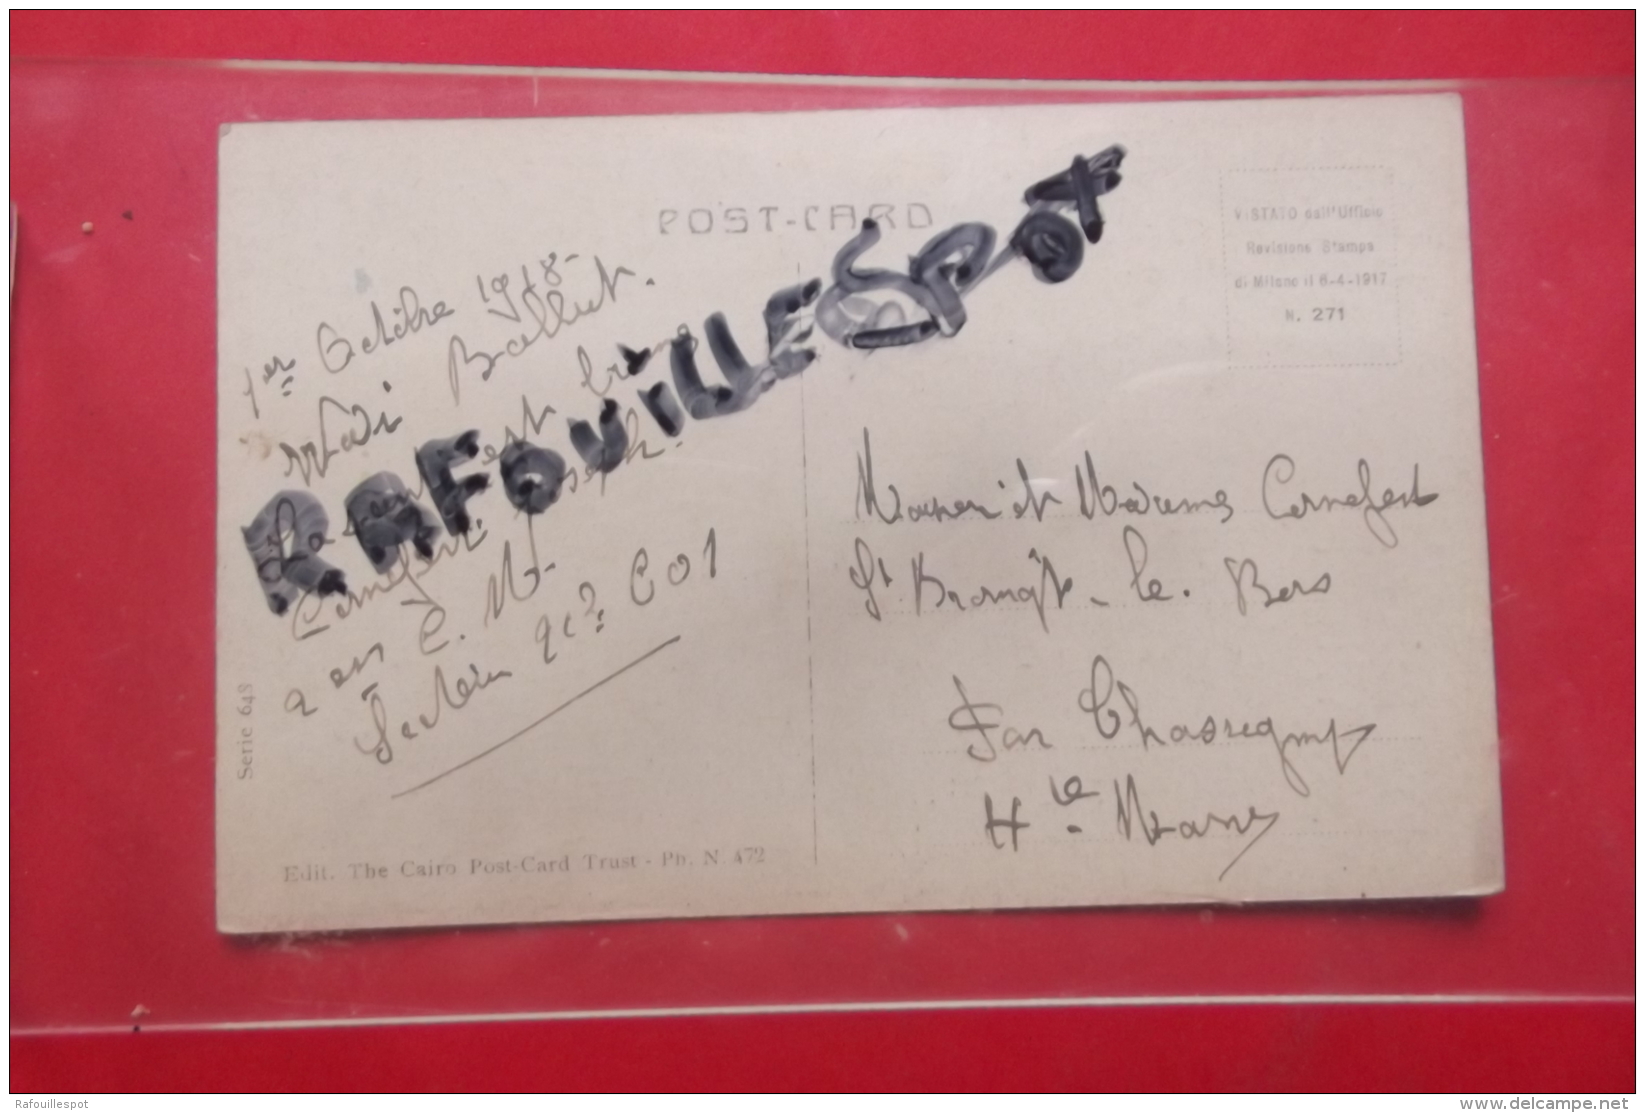 POST-CARD
VISTATO dall'Ufficio
Revisione Stampa
di Milano il 6-4-1917
N. 271
1er Octobre 1918-
Wadi
La santé est
Cornefert Joseph.
Section
601
RAFOUILLESPOT
et Madame Cornefert
St Broingt-le-Bois
Par Chassigny
Hte Marne
Serie 648
Edit. The Cairo Post-Card Trust - Ph. N. 472
Rafouillespot
www.delcampe.net